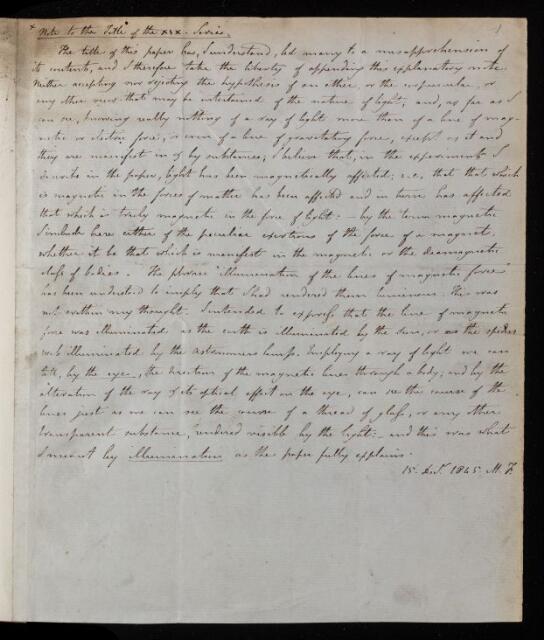 * Note to the Title of the XIX. Series. 1
The title of this paper has, I understand, led many to a misapprehension of
its contents, and I therefore take the liberty of appending this explanatory note.
Neither accepting nor rejecting the hypothesis of an ether, or the corpuscular, or
any other view that may be entertained of the nature of light; and, as far as I
can see, knowing really nothing of a ray of light more than of a line of mag-
netic or electric force, or even of a line of gravitating force, except as it and
they are manifest in & by substances; I believe that, in the experiments I
describe in the paper, light has been magnetically affected; i.e. that that which
is magnetic in the forces of matter has been affected and in turn has affected
that which is truly magnetic in the force of light: - by the term magnetic
I include here either of the peculiar exertions of the force of a magnet,
whether it be that which is manifest in the magnetic or the diamagnetic
class of bodies. The phrase "illumination of the lines of magnetic force"
has been understood to imply that I had rendered them luminous. This was
not within my thought. I intended to express that the line of magnetic
force was illuminated as the earth is illuminated by the sun, or as the spiders
web illuminated by the astronomers lamp. Employing a ray of light we can
tell, by the eye, the direction of the magnetic lines through a body; and by the
alteration of the ray & its optical effect on the eye, can see the course of the
lines just as we can see the course of a thread of glass, or any other
transparent substance, rendered visible by the light: - and this was what
I meant by illumination as the paper fully explains.
15 Decr. 1845 M. F.